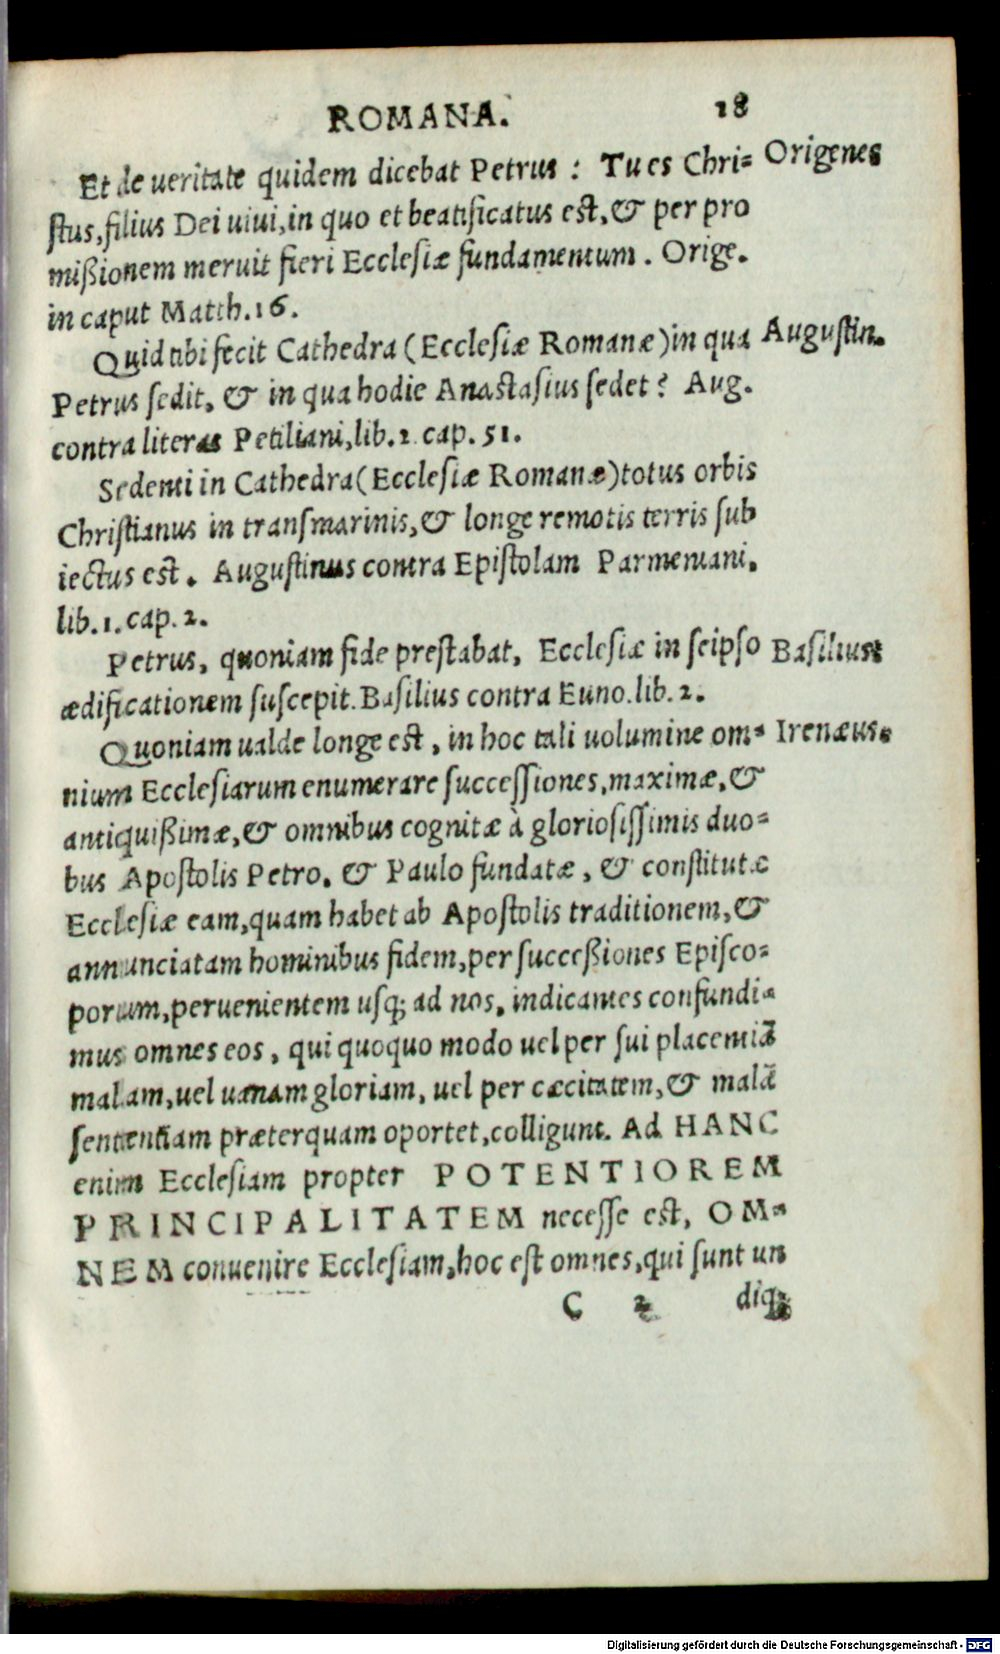 ROMANA. 18
Et de ueritate quidem dicebat Petrus : Tu es Chri= Origenes
ſtus, filius Dei uiui, in quo et beatificatus eſt, & per pro
mißionem meruit fieri Eccleſiæ fundamentum. Orige.
in caput Matth. 16.
Quid tibi fecit Cathedra (Eccleſiæ Romanæ) in qua Auguſtin.
Petrus ſedit, & in qua hodie Anaſtaſius ſedet? Aug.
contra literas Petiliani, lib. 2. cap. 51.
Sedenti in Cathedra (Eccleſiæ Romanæ) totus orbis
Chriſtianus in tranſmarinis, & longe remotis terris ſub
iectus eſt. Auguſtinus contra Epiſtolam Parmeniani.
lib. 1. cap. 2.
Petrus, quoniam fide preſtabat, Eccleſiæ in ſeipſo Baſilius
ædificationem ſuſcepit. Baſilius contra Euno. lib. 2.
Quoniam ualde longe eſt, in hoc tali uolumine om= Irenæus.
nium Eccleſiarum enumerare ſucceſſiones, maximæ, &
antiquißimæ, & omnibus cognitæ à glorioſiſſimis duo=
bus Apoſtolis Petro, & Paulo fundatæ, & conſtitutæ
Eccleſiæ eam, quam habet ab Apoſtolis traditionem, &
annunciatam hominibus fidem, per ſucceßiones Epiſco=
porum, peruenientem uſq; ad nos, indicantes confundi=
mus omnes eos, qui quoquo modo uel per ſui placentiā
malam, uel uanam gloriam, uel per cæcitatem, & malā
ſententiam præterquam oportet, colligunt. Ad HANC
enim Eccleſiam propter POTENTIOREM
PRINCIPALITATEM neceſſe eſt, OM=
NEM conuenire Eccleſiam, hoc eſt omnes, qui ſunt un
C 2 diq;
Digitalisierung gefördert durch die Deutsche Forschungsgemeinschaft - DFG